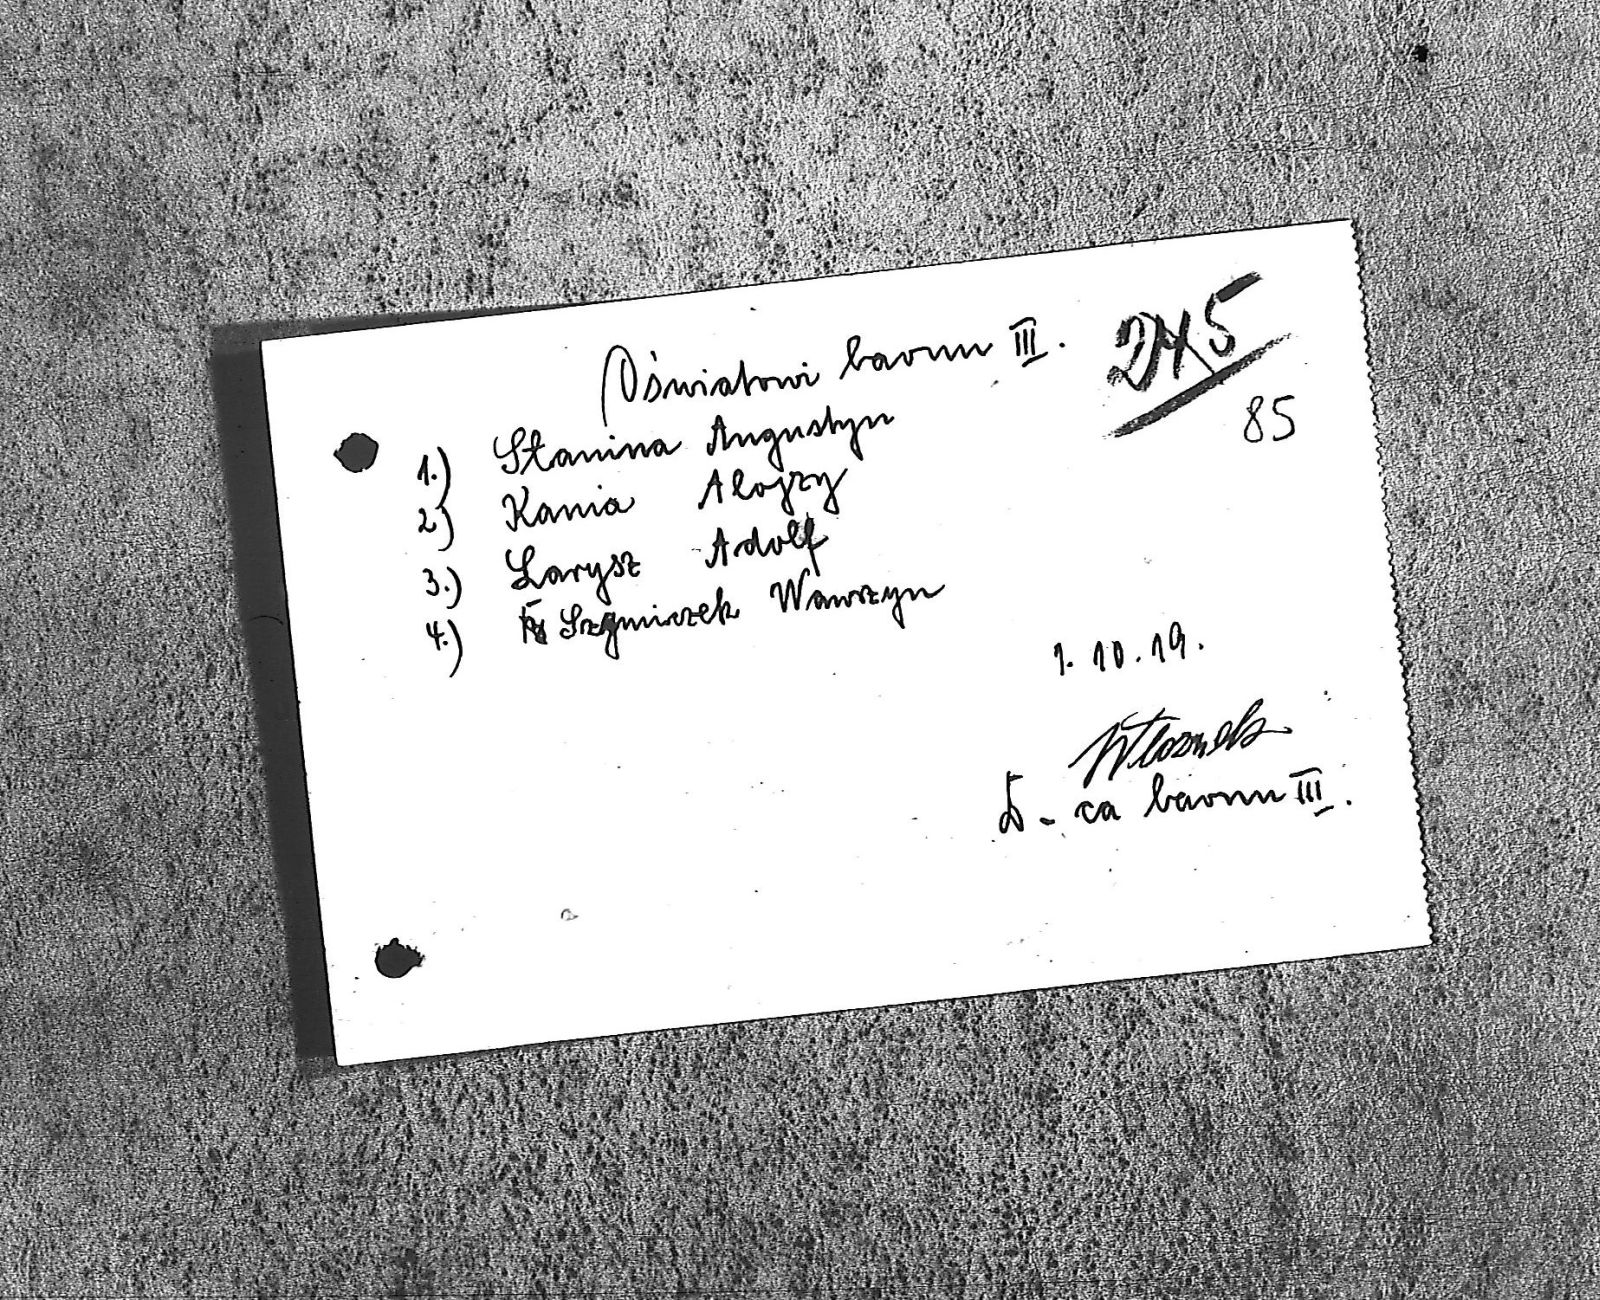 Oświatowi baonu III.
245
85
1.) Stanina Augustyn
2) Kania Alojzy
3.) Larysz Adolf
4.) Szymiczek Wawrzyn
1. 10. 19.
D-ca baonu III.